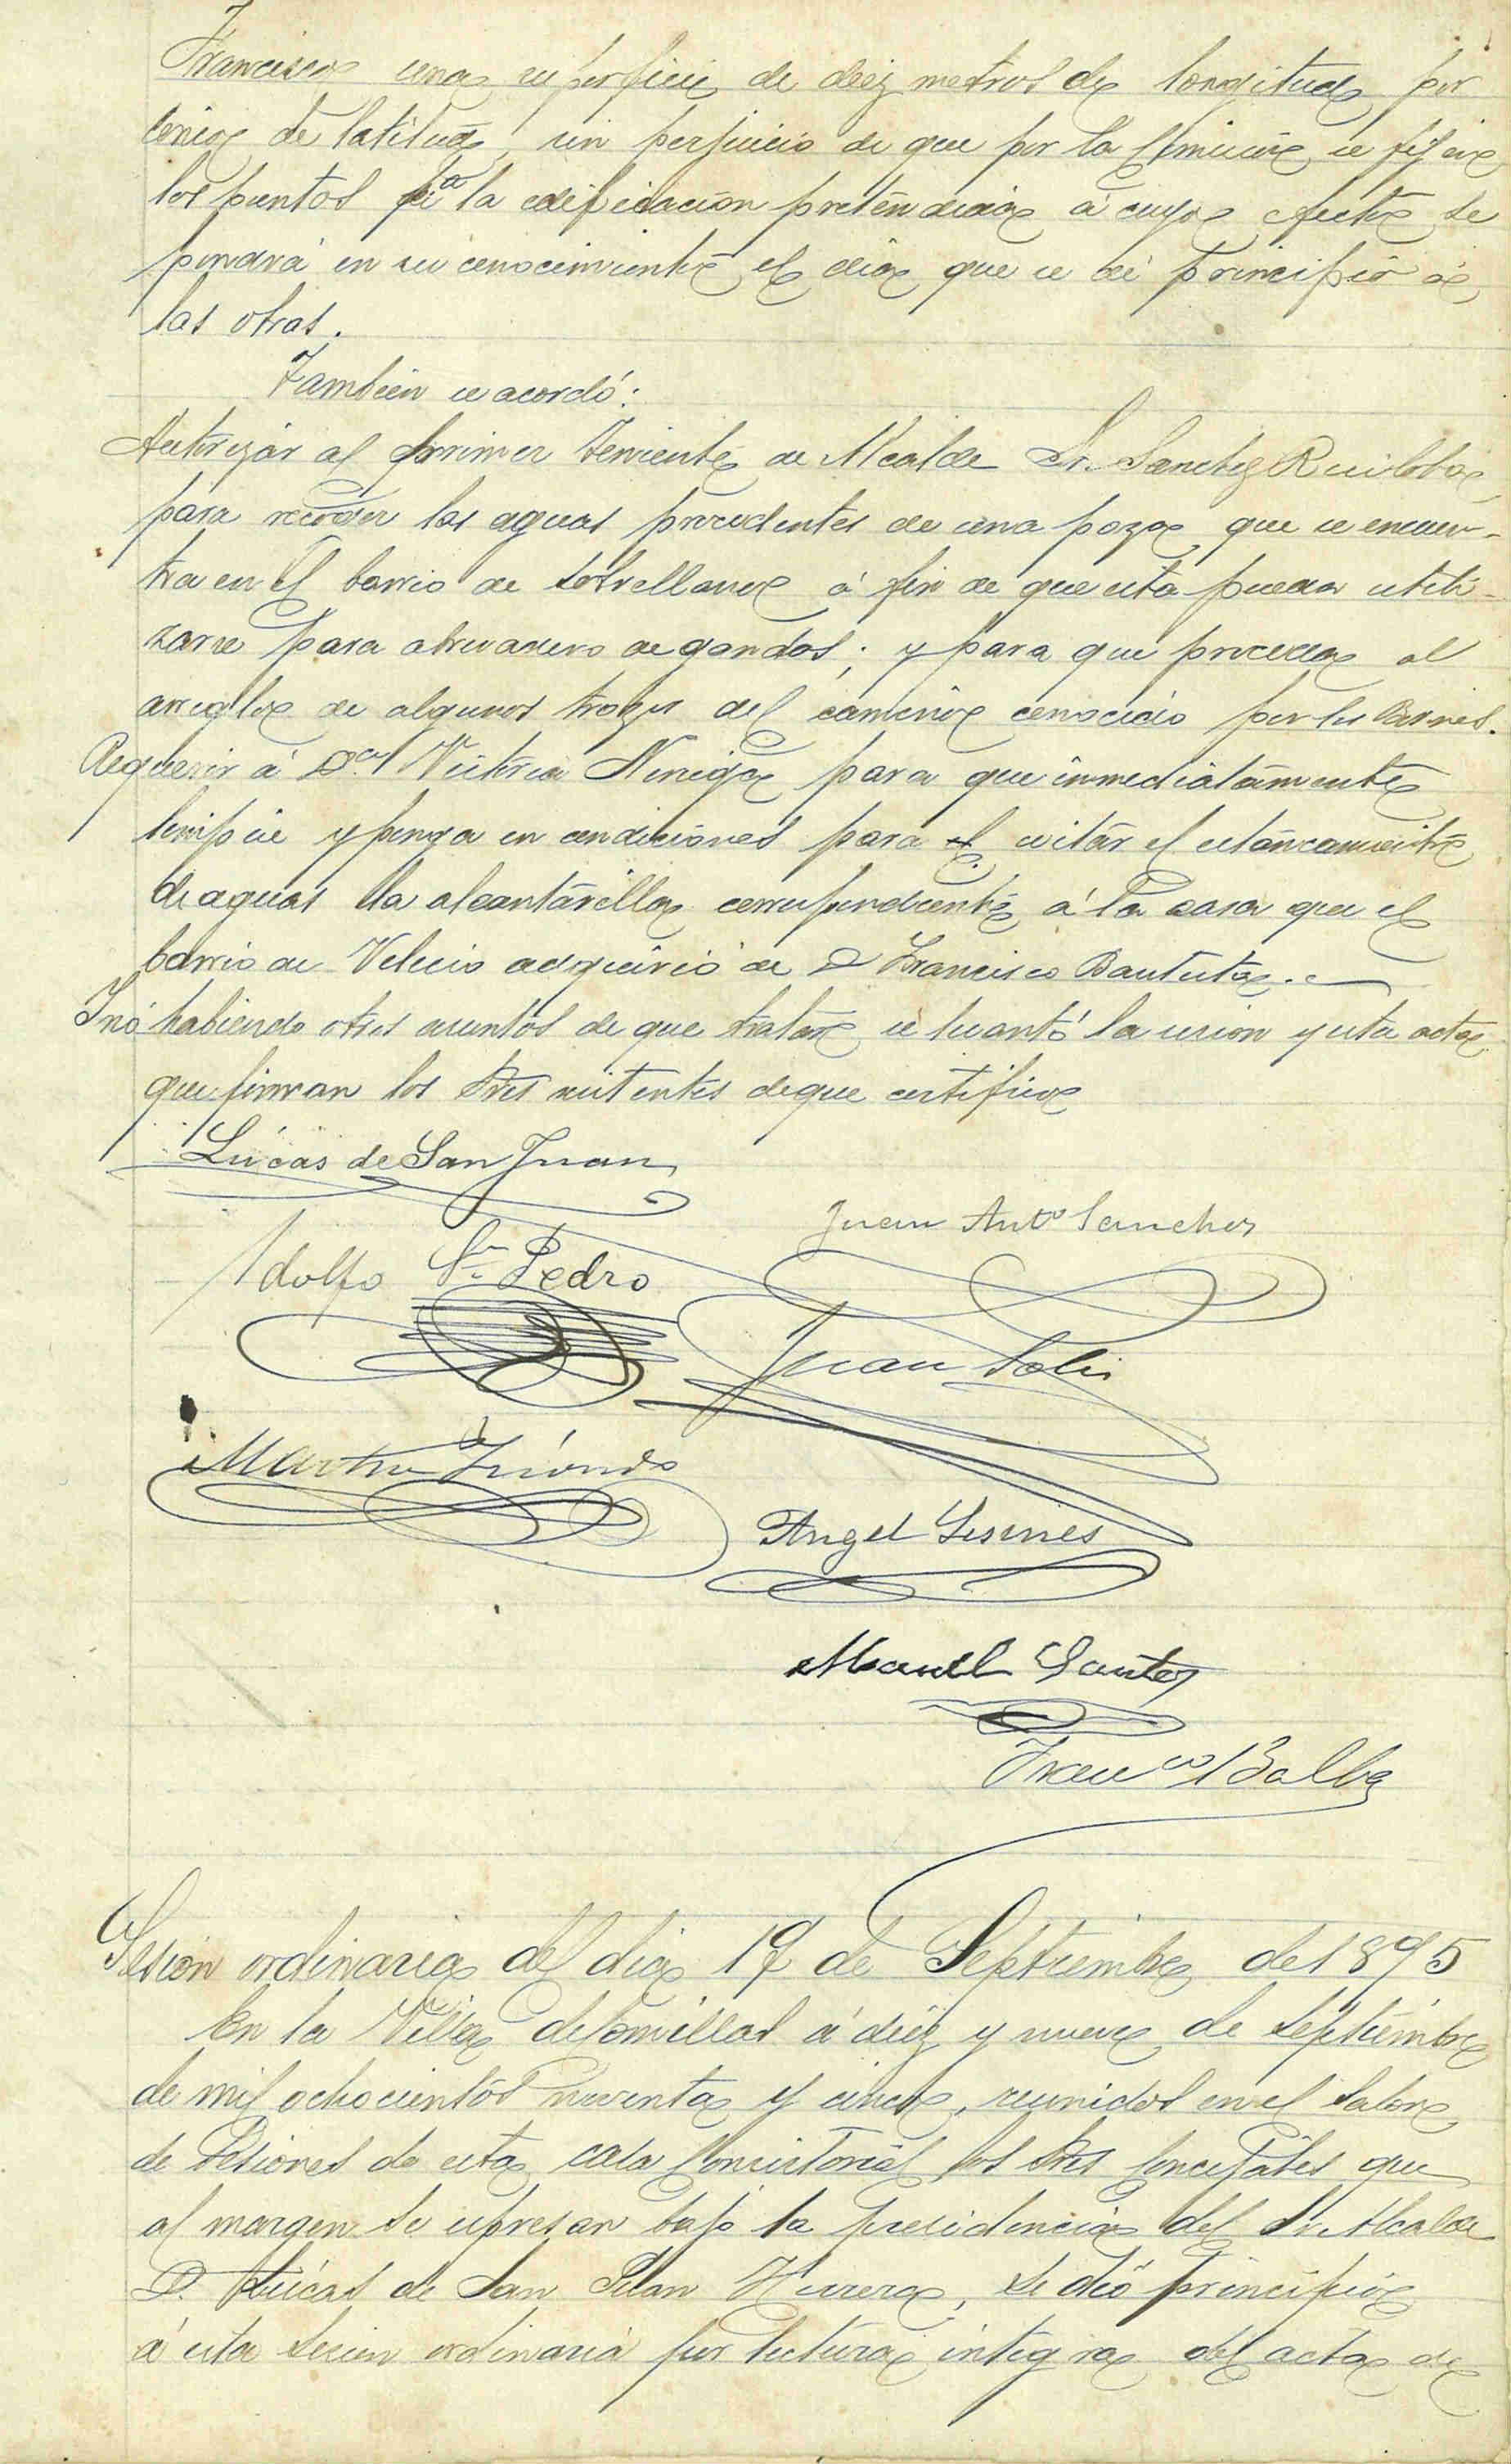 Francisco una superficie de diez metros de longitud por
cinco de latitud, sin perjuicio de que por la Comisión se fijen
los puntos pª la edificación pretendida á cuyo efecto se
pondrá en su conocimiento el día que se dé principio á
las obras.
Tambien se acordó:
Autorizar al primer Teniente de Alcalde Sr. Sanchez Ruiloba
para recoger las aguas procedentes de una poza que se encuen-
tra en el barrio de Sobrellano á fin de que esta pueda utili-
zarse para abrevadero de ganados; y para que proceda al
arreglo de algunos trozos del camino conocido por los
Requerir á Dª Victoria Noriega para que inmediatamente
limpie y ponga en condiciones para el evitar el estancamiento
de aguas la alcantarilla correspondiente á la casa que el
barrio de Velecio adquirió de D Francisco Bautista.
Y no habiendo otros asuntos de que tratar se levantó la sesion y esta acta
que firman los Sres asistentes de que certifico
Lucas de San Juan
Juan Antº Sanchez
Adolfo Sn Pedro
Juan Solis
Martin
Angel Gesines
Manuel Santos
Franco Balbas
Sesión ordinaria del dia 19 de Septiembre de 1895
En la Villa de Comillas á diez y nueve de Septiembre
de mil ochocientos noventa y cinco, reunidos en el Salon
de Sesiones de esta casa Consistorial los Sres Concejales que
al margen se espresan bajo la presidencia del Sr. Alcalde
D. Lucas de San Juan Herrera, se dió principio
á esta sesion ordinaria por lectura integra del acta de